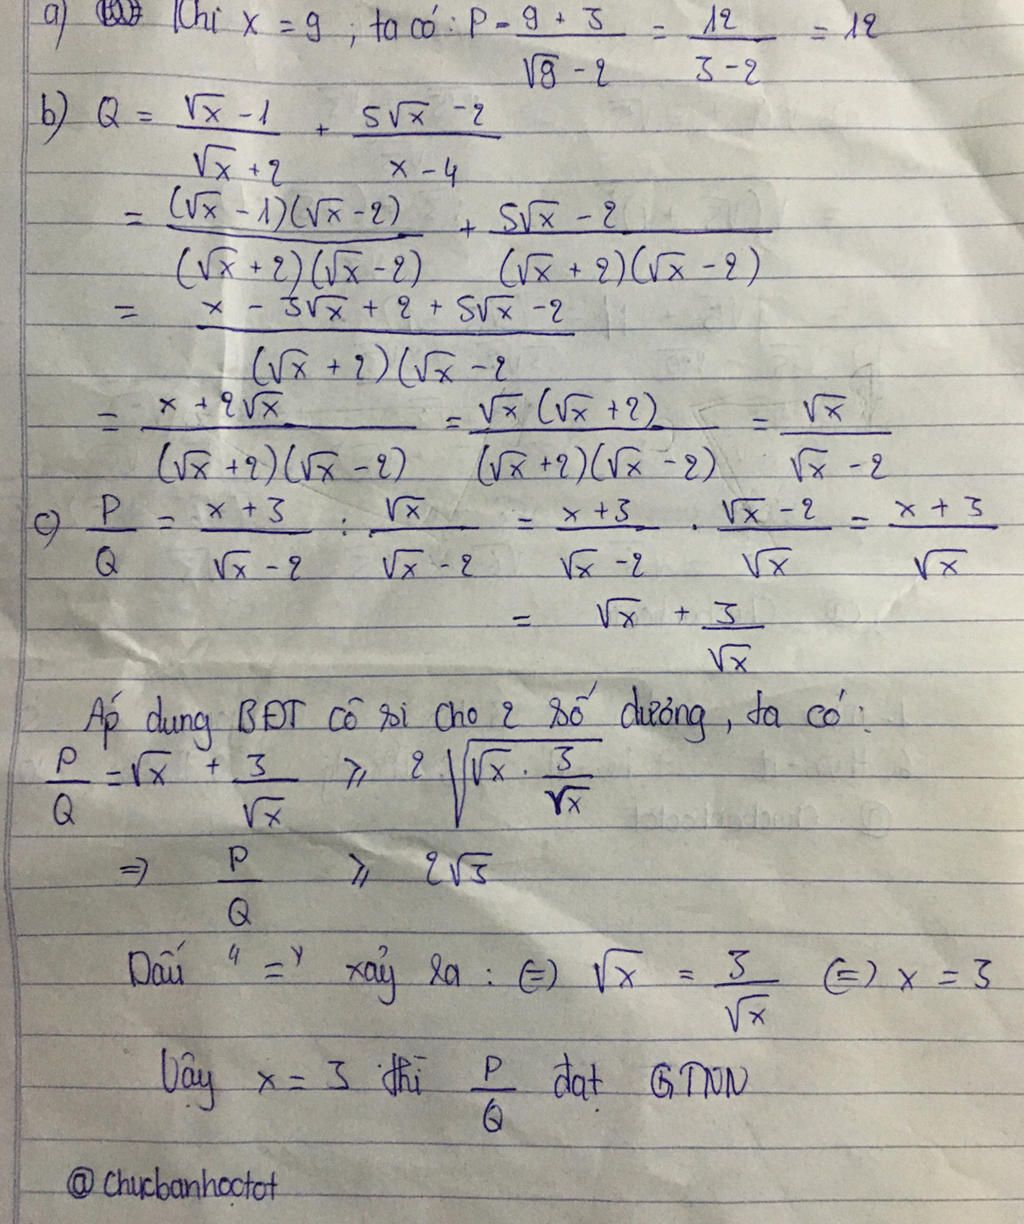 a) Khi x = 9, ta có: P = 9 + 3 / √9 - 2 = 12 / 3 - 2 = 12
b) Q = √x - 1 / √x + 2 + 5√x - 2 / x - 4
= (√x - 1)(√x - 2) / (√x + 2)(√x - 2) + 5√x - 2 / (√x + 2)(√x - 2)
= x - 3√x + 2 + 5√x - 2 / (√x + 2)(√x - 2
= x + 2√x / (√x + 2)(√x - 2) = √x (√x + 2) / (√x + 2)(√x - 2) = √x / √x - 2
c) P / Q = x + 3 / √x - 2 : √x / √x - 2 = x + 3 / √x - 2 . √x - 2 / √x = x + 3 / √x
= √x + 3 / √x
Áp dung BĐT cô si cho 2 số dương, ta có:
P / Q = √x + 3 / √x ⩾ 2 √(√x . 3 / √x)
=> P / Q ⩾ 2√3
Dấu "=" xảy ra : (=) √x = 3 / √x (=) x = 3
Vậy x = 3 thì P / Q đạt GTNN
@ chucbanhoctot